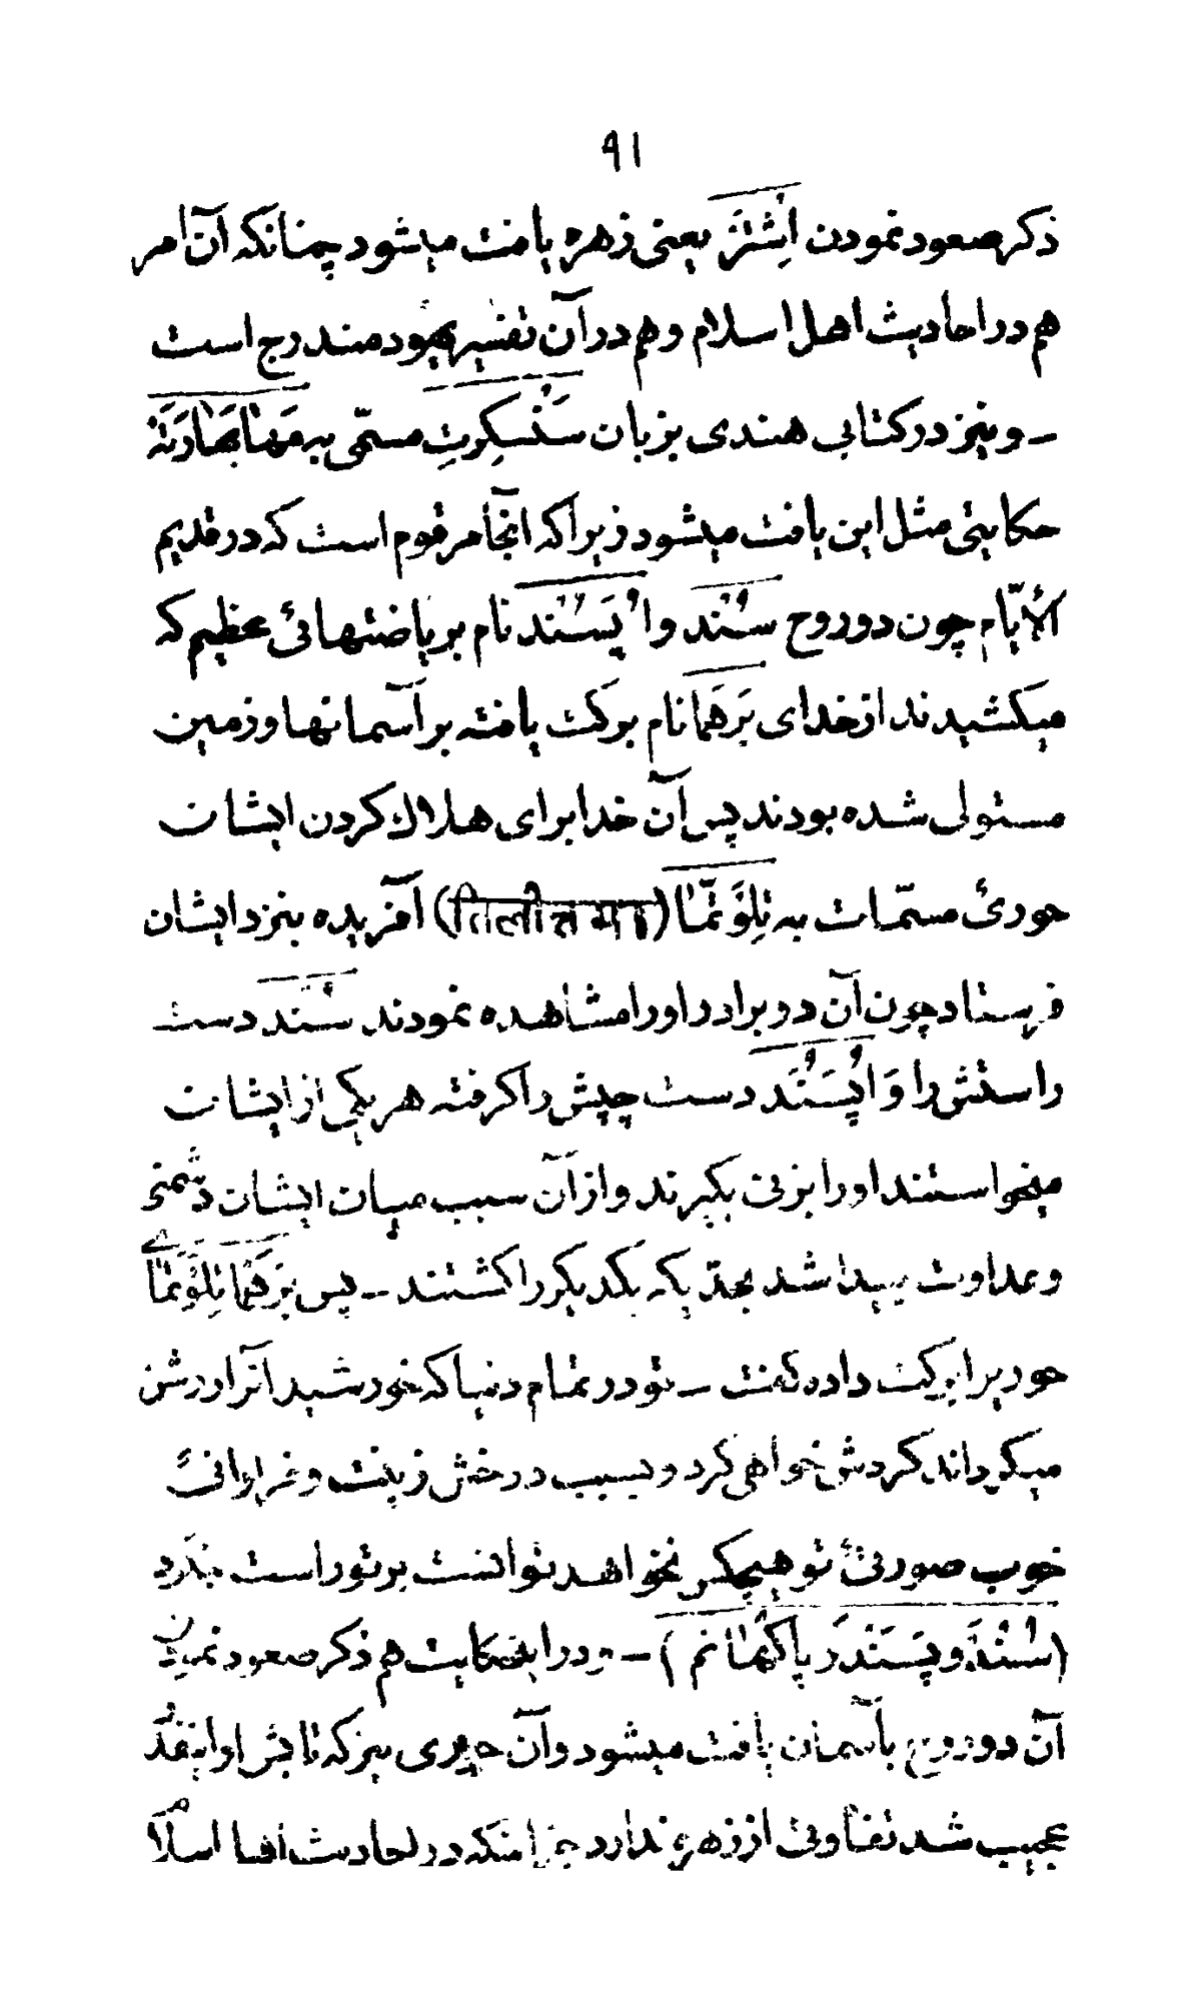 ۹۱
ذکر صعود نمودن اِشْتَرْ یعنی زهره یافت میشود چنانکه آن امر
هم در احادیث اهل اسلام و هم در آن تفسیر یهود مندرج است
ـ و نیز در کتابی هندی بزبان سَنْسکِرِیت مسمّی به مَهَابَهَارَتَهْ
حکایتی مثل این یافت میشود زیرا که آنجا مرقوم است که در قدیم
الأیّام چون دو روح سُنْد و اُپَسُنْد نام بریاضتهائ عظیم که
میکشیدند از خدای بَرَهْمَا نام برکت یافته بر آسمانها و زمین
مستولی شده بودند پس آن خدا برای هلاک کردن ایشان
حورئ مسمّات به تِلَوْتَّمَا (तिलोत्तमा) آفریده بنزد ایشان
فرستاد چون آن دو برادر او را مشاهده نمودند سُنْد دست
راستش را وَ اُپَسُنْدَ دست چپش را گرفته هر یکی از ایشان
میخواستند او را بزنی بگیرند و از آن سبب میان ایشان دشمنی
و عداوت پیدا شد بحدّیکه یکدیگر را کشتند ـ پس بَرَهْمَا تِلَوْتَّمَاے
حور را برکت داده گفت ـ تو در تمام دنیا که خورشید آنرا روشن
میگرداند گردش خواهی کرد و بسبب درخش زینت و فراوانئ
خوب صورتئ تو هیچکس نخواهد توانست بر تو راست بنگرد
(سُنْدَ و پَسُنْدَ پاکهیانم) ـ و در این حکایت هم ذکر صعود نمودن
آن دو روح بآسمان یافت میشود و آن حوری نیز که تابش او اینقدر
عجیب شد تفاوتی از زهره ندارد جز اینکه در احادیث اهل اسلام